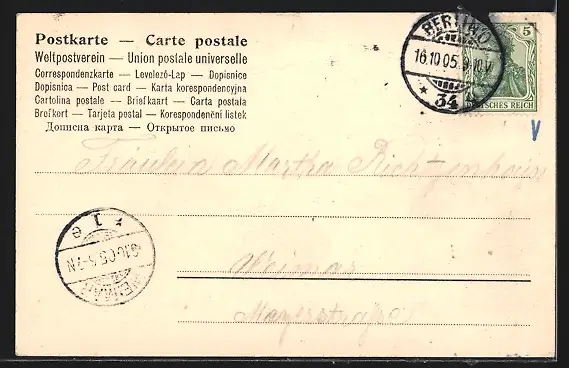 Postkarte — Carte postale
Weltpostverein — Union postale universelle
Correspondenzkarte — Levelező-Lap — Dopisnice
Dopisnica — Post card — Karta korespondencyjna
Cartolina postale — Briefkaart — Carta postala
Brefkort — Tarjeta postal — Korespondenční lístek
Дописна карта — Открытое письмо
BERLIN O
16.10 05. 9-10.V.
* 34
5
DEUTSCHES REICH
Fräulein Martha
1 e
WEIMAR
.10.05.6-7N
Weimar